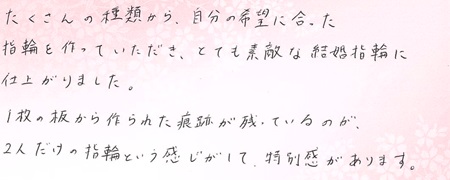 たくさんの種類から、自分の希望に合った
指輪を作っていただき、とても素敵な結婚指輪に
仕上がりました。
1枚の板から作られた痕跡が残っているのが、
2人だけの指輪という感じがして、特別感があります。